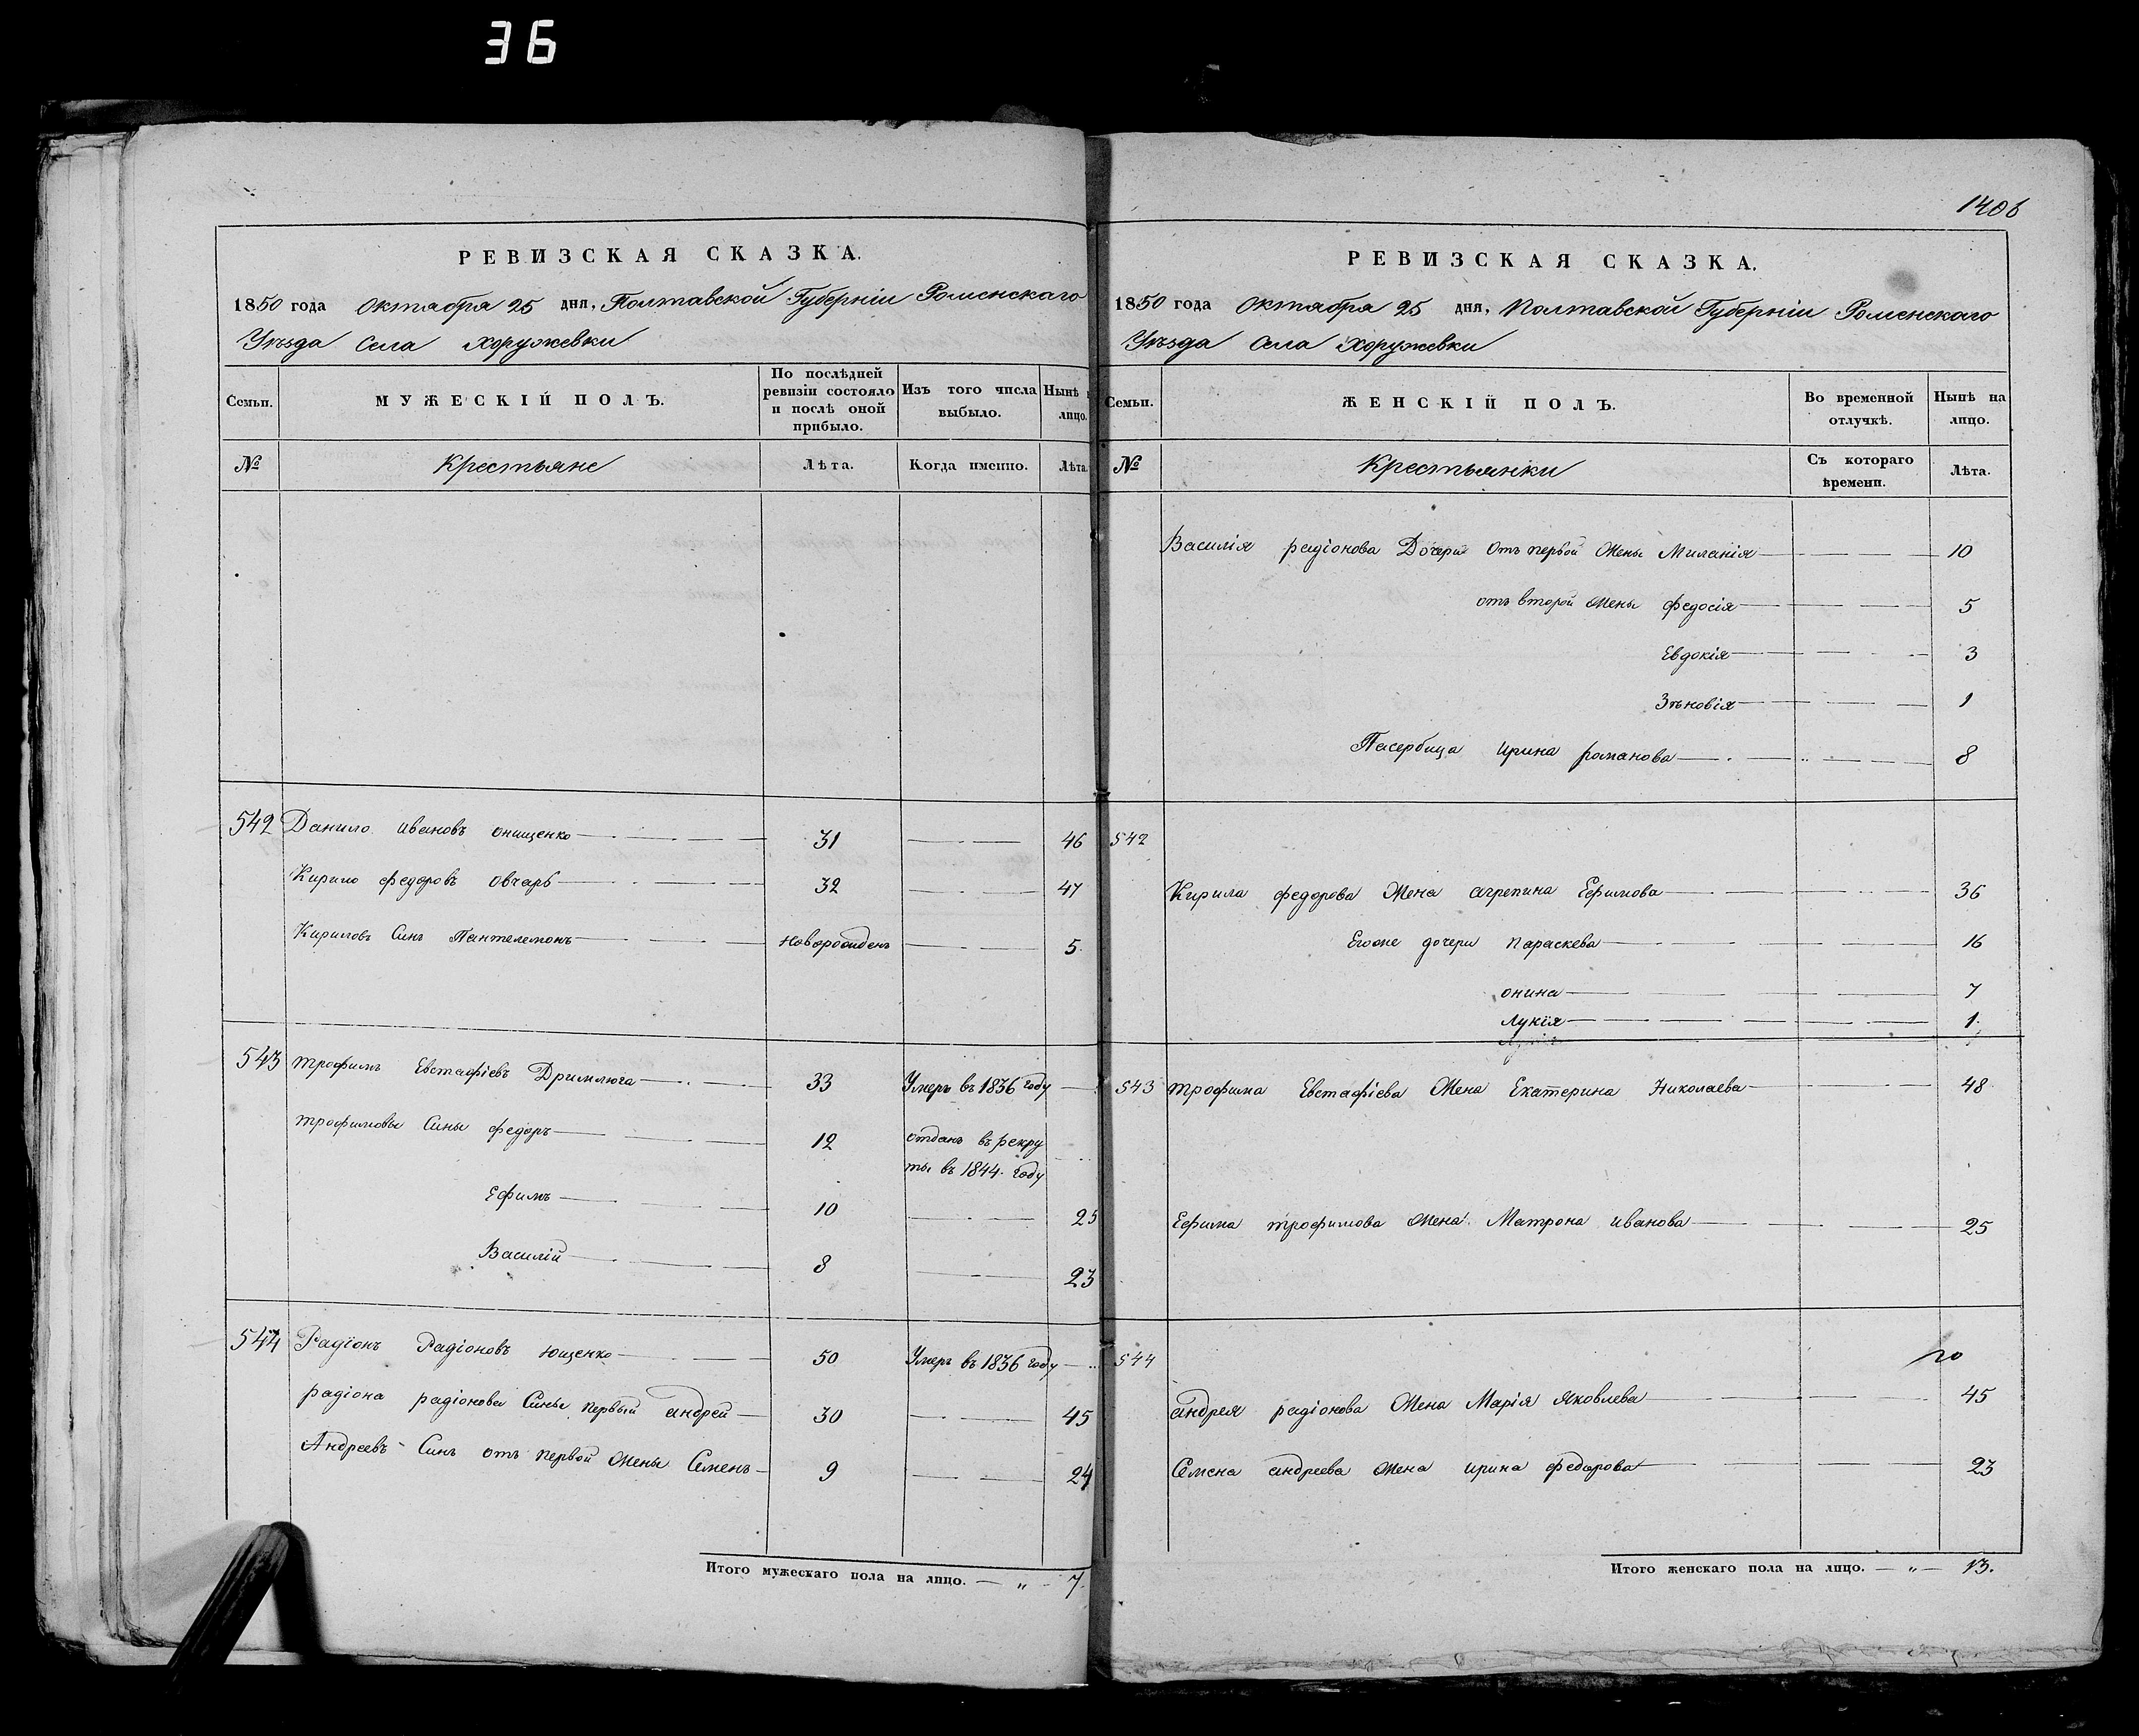 36
РЕВИЗСКАЯ СКАЗКА.
1850 года Октября 25 дня, Полтавской Губерніи Роменскаго
Уѣзда Села Хоружевки
Семьи.
МУЖЕСКІЙ ПОЛЪ.
По послѣдней ревизіи состояло и послѣ оной прибыло.
Изъ того числа выбыло.
Нынѣ н лицо.
№
Крестьяне
Лѣта.
Когда именно.
Лѣта.
542 Данило Ивановъ Онищенко 31 46
Кирило Федоровъ Овчарь 32 47
Кириловъ Синъ Пантелемонъ новорожденъ 5
543 Трофимъ Евстафіевъ Дримлюга 33 Умеръ въ 1836 году
Трофимовы Сины Федоръ 12 отданъ въ рекру
ты въ 1844. году
Ефимъ 10 25
Василій 8 23
544 Радіонъ Радіоновъ Ющенко 50 Умеръ въ 1836 году
радіона радіонова Сины первый андрей 30 45
Андреевъ Синъ отъ первой Жены Семенъ 9 24
Итого мужескаго пола на лицо. — „ — 7.
1406
РЕВИЗСКАЯ СКАЗКА.
1850 года Октября 25 дня, Полтавской Губерніи Роменскаго
Уѣзда Села Хоружевки
Семьи.
ЖЕНСКІЙ ПОЛЪ.
Во временной отлучкѣ.
Нынѣ на лицо.
№
Крестьянки
Съ котораго времени.
Лѣта.
Василія радіонова Дочери Отъ первой Жены Миланія 10
отъ второй Жены Федосія 5
Евдокія 3
Зѣновія 1
Пасербица Ирина романова 8
542
Кирила Федорова Жена агрепина Ефимова 36
Егоже дочери Параскева 16
онина 7
Лукія 1.
543 Трофима Евстафіева Жена Екатерина Николаева 48
Ефима трофимова Жена Матрона Иванова 25
544
андрея радіонова Жена Марія Яковлева 45
Семена андреева Жена Ирина Федорова 23
Итого женскаго пола на лицо. — „ — 13.